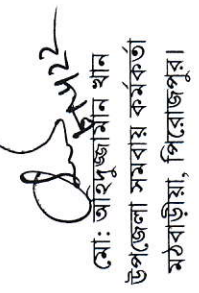 মো: অহিদুজ্জামান খান
উপজেলা সমবায় কর্মকর্তা
মঠবাড়ীয়া, পিরোজপুর।